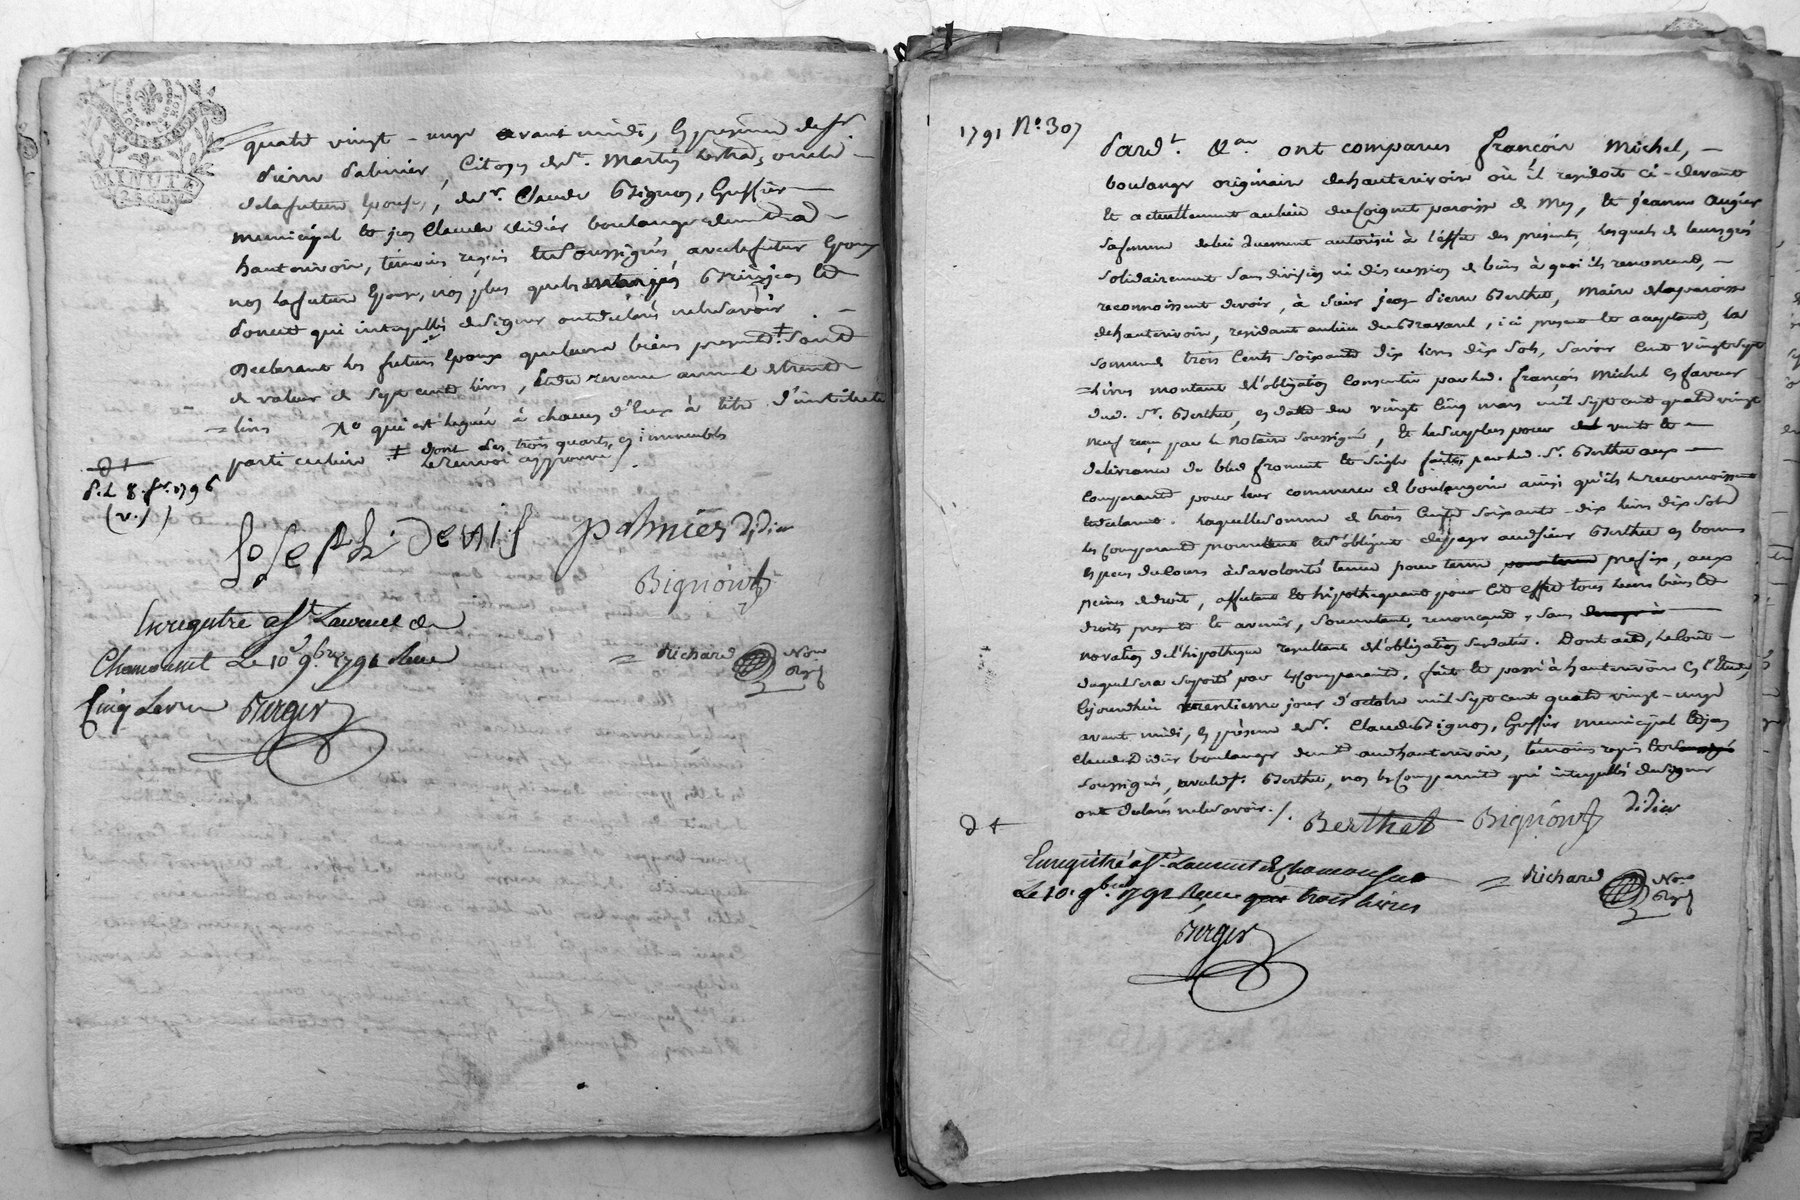 MINUTE
quatre vingt-onze avant midi, En presence de Sr.
pierre palmier, Citoyen de St. Martin Lestra, oncle
de la future Epouse, de Sr. Claude Bignon, Greffier
municipal et jean Claude didier boulanger demt. aud.
hauterivoir, temoins requis et soussignés, avec le futur Epoux
non la future Epouse, non plus que les
qui interpellés de signer ont declarés ne le savoir
Declarant les futurs Epoux que leurs biens presents ‡ sont
de valeur de sept cents livres, et du revenu annuel de trente
= livres qui est legué à chacun d'Eux à titre d'institution
particuliere ‡ dont les trois quarts en immeubles
le renvoi approuvé /
d +
d. L 8. fr. 1796
(v. /)
Joseph Denis palmier didier
Bignon
Enregistré à St. Laurent de
Chamousset Le 10 9bre 1791 Recu
Cinq Livres Berger
= Richard Nore
Royal
1791 No. 307
Pardt. &a. ont comparus françois Michel,
boulanger originaire de hauterivoir où il residoit ci-devant
et actuellement au lieu du Soignet paroisse de Mey, et jeanne Augier
sa femme de lui duement autorisée à l'effet des presentes, lesquels de leurs grés
solidairement sans division ni discussion de biens à quoi ils renoncent,
reconnoissent devoir, à sieur jean pierre Berthet, Maire de la paroisse
de hauterivoir, residant au lieu du Gravarel, ici present et acceptant, la
somme de trois Cents Soixante dix livres dix Sols, Savoir Cent vingt sept
= livres montant de l'obligation Consentie par led. françois Michel en faveur
dud. Sr. Berthet, en date du vingt Cinq mars mil sept cent quatre vingt
neuf reçue par le Notaire soussigné, et le surplus pour vente et
delivrance de bled froment et seigle faites par led. Sr. Berthet aux
comparants pour leur commerce de boulangerie ainsi qu'ils le reconnoissent
et declarent. Laquelle somme de trois Cents soixante-dix livres dix sols
les Comparants promettent et s'obligent de payer audsieur Berthet en bonnes
especes du Cours à sa volonté tenue pour terme prefix, aux
peines de droit, affectant et hipothequant pour cet effet tous leurs biens et
droits presents et avenir, soumettant, renonçant, sans
novation de l'hipotheque resultant de l'obligation sus datée. Dont acte, le Cout
duquel sera suporté par les Comparants. fait et passé à hauterivoir En l'Etude,
Cejourd'hui trentieme jour d'octobre mil sept cent quatre vingt-onze
avant midi, En présence de Sr. Claude Bignon, Greffier municipal et jean
Claude Didier boulanger demt. aud hauterivoir, témoins requis et
soussignés, avec led Sr. Berthet, non les Comparants qui interpellés de signer
ont declarés ne le savoir. /.
d +
Berthet Bignon didier
Enregistré à St. Laurent de Chamousset
Le 10. 9bre 1791 Recu trois livres
Berger
= Richard Nore
Royal